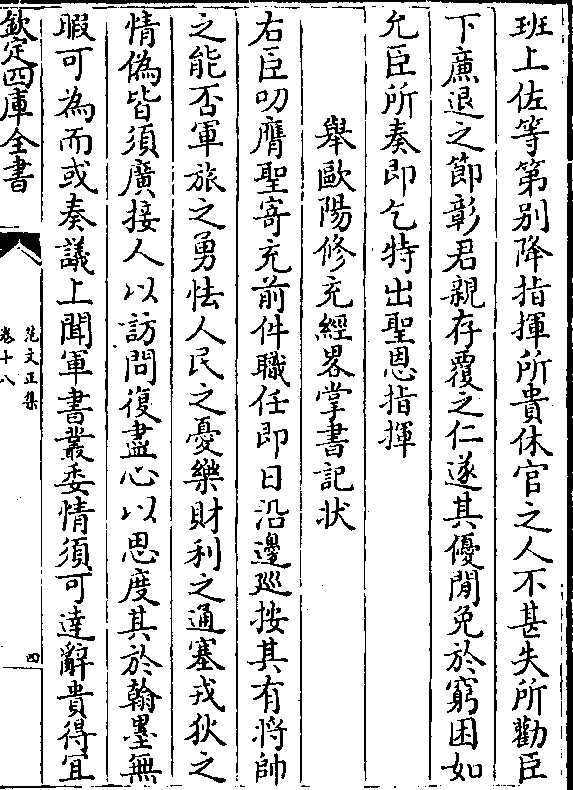 班上佐等第别降指揮所貴休官之人不甚失所勸臣
下亷退之節彰君親存覆之仁遂其優閒免於窮困如
允臣所奏即乞特出聖恩指揮
舉歐陽修充經畧掌書記状
右臣叨膺聖寄充前件職任即日沿邊廵按其有將帥
之能否軍旅之勇怯人民之憂樂財利之通塞戎狄之
情偽皆須廣接人以訪問復盡心以思度其於翰墨無
暇可為而或奏議上聞軍書叢委情須可達辭貴得宜
欽定四庫全書
范文正集
卷十八
四